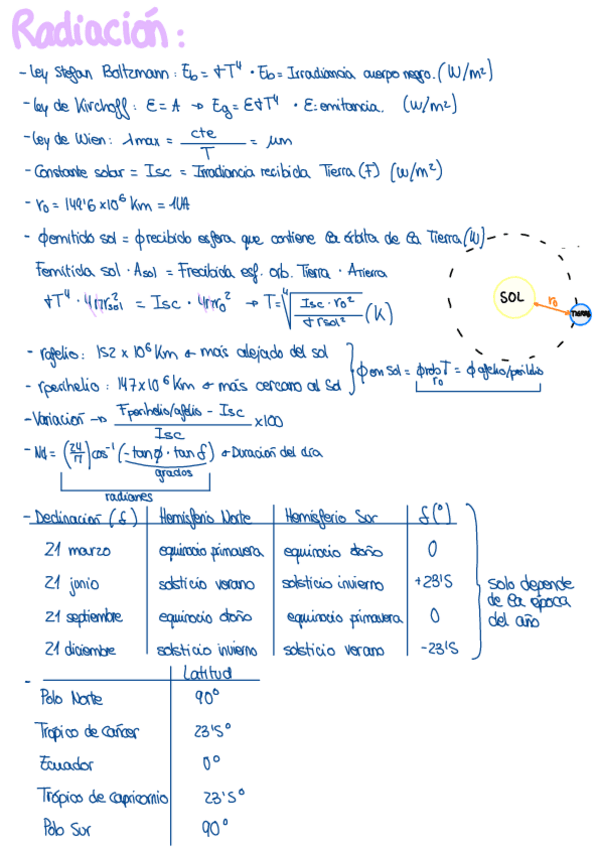 Radiación:
- Ley Stefan Boltzmann: Eb = σT⁴ · Eb = Irradiancia cuerpo negro. (W/m²)
- Ley de Kirchoff: E = A → Eg = EσT⁴ · E: emitancia. (W/m²)
- Ley de Wien: λmax = cte / T = μm
- Constante solar = Isc = Irradiancia recibida Tierra (F) (W/m²)
- r₀ = 149'6 x10⁶ Km = 1UA
- ϕemitido sol = ϕrecibido esfera que contiene la órbita de la Tierra (W)
Femitida sol · Asol = Frecibida esf. orb. Tierra · ATierra
σT⁴ · 4πr²sol = Isc · 4πr₀² → T = ⁴√(Isc · r₀² / σ rsol²) (K)
SOL
r₀
TIERRA
- rafelio: 152 x 10⁶ Km → más alejado del sol
- rperihelio: 147 x 10⁶ Km → más cercano al sol
ϕem sol = ϕrorb T = ϕ afelio/perihelio
r₀
- Variación → Fperihelio/afelio - Isc / Isc x100
- Nd = (24/π) cos⁻¹ (-tanϕ · tan δ) → Duración del día
grados
radianes
- Declinación (δ) Hemisferio Norte Hemisferio Sur δ(°)
21 marzo equinocio primavera equinocio otoño 0
21 junio solsticio verano solsticio invierno +23'5
21 septiembre equinocio otoño equinocio primavera 0
21 diciembre solsticio invierno solsticio verano -23'5
solo depende
de la época
del año
- Latitud
Polo Norte 90°
Trópico de cáncer 23'5°
Ecuador 0°
Trópico de capricornio 23'5°
Polo Sur 90°